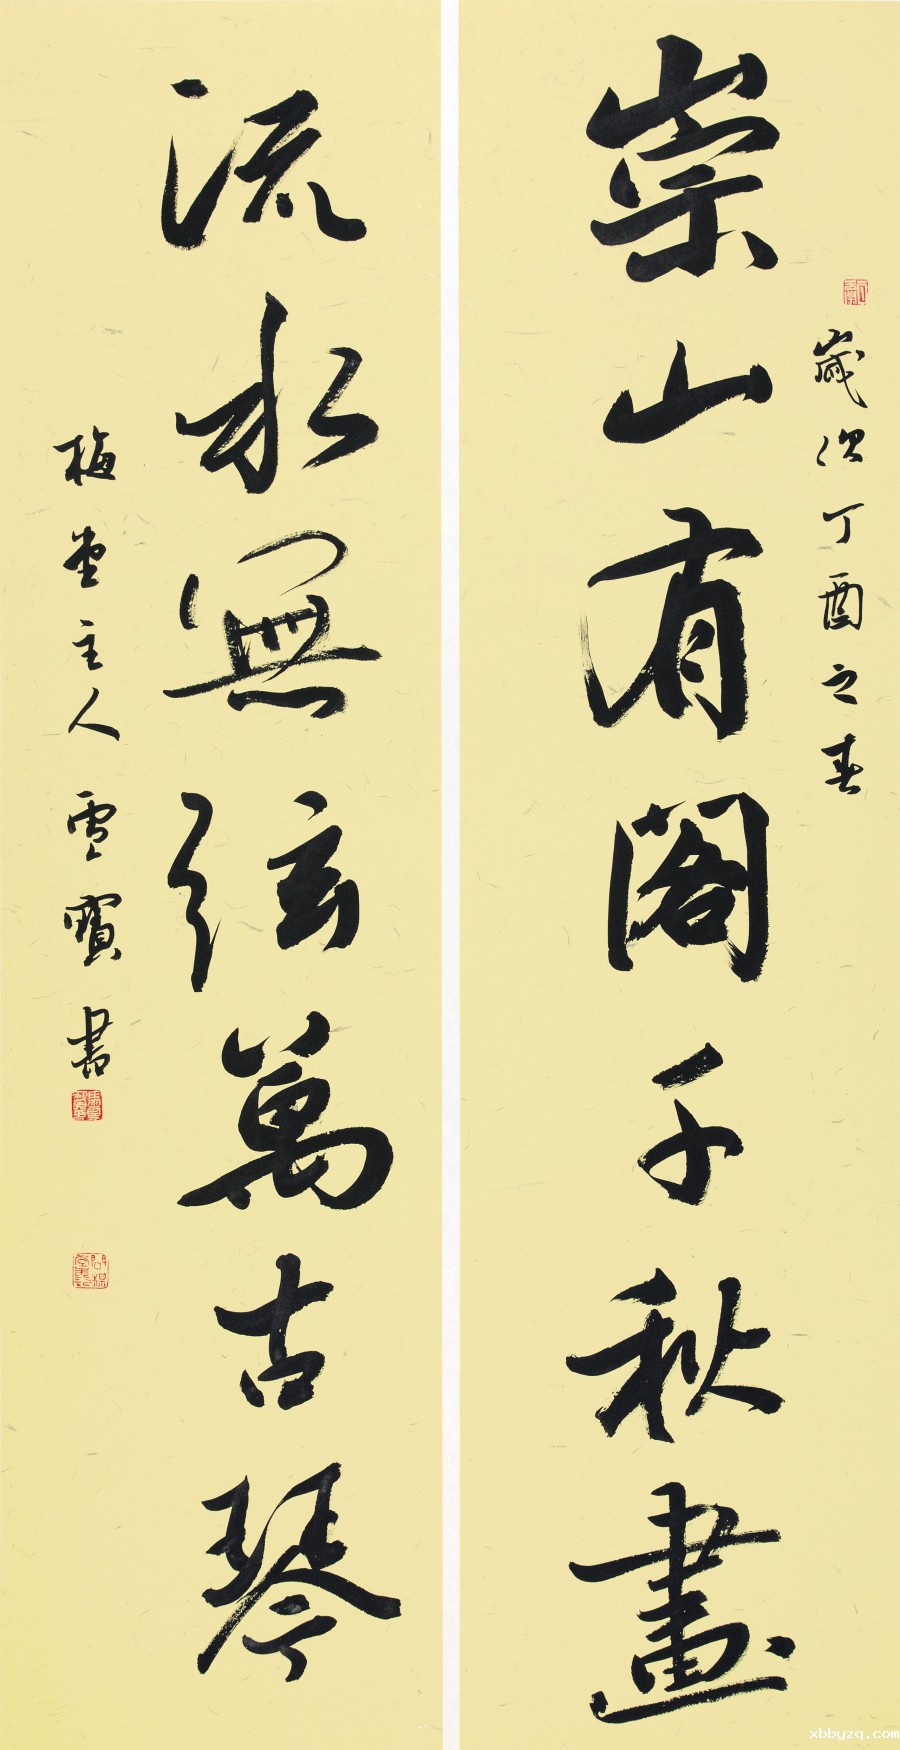 歲次丁酉之春
崇山有閣千秋畫
流水無弦萬古琴
梅堂主人雪寶書
xbbyzq.com